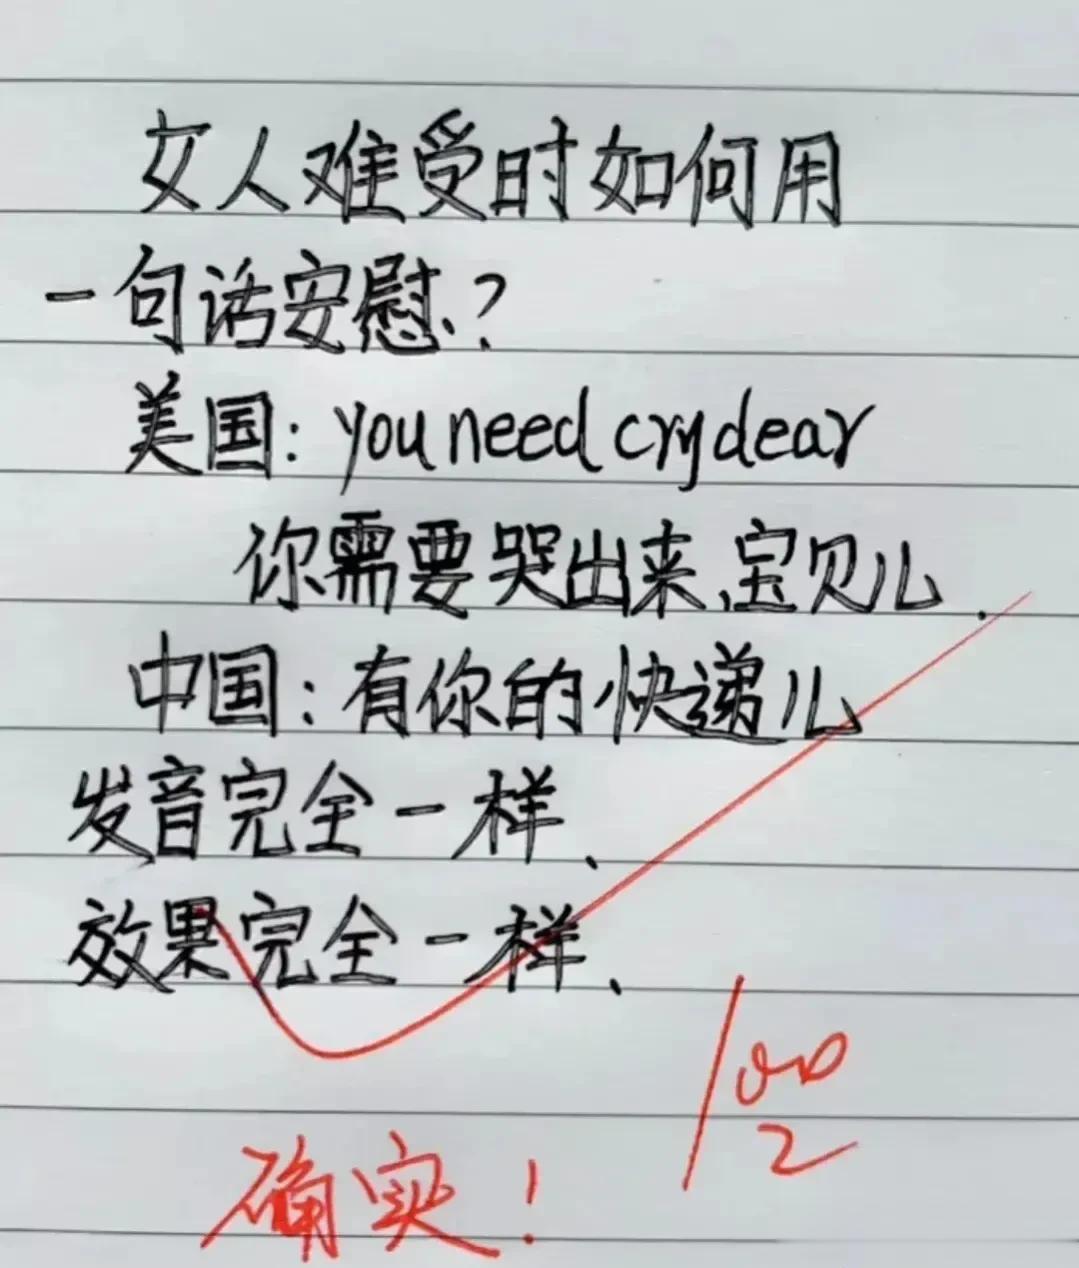 女人难受时如何用
一句话安慰?
美国: you need cry dear
你需要哭出来、宝贝儿.
中国: 有你的快递儿
发音完全一样、
效果完全一样、
100
2
确实!